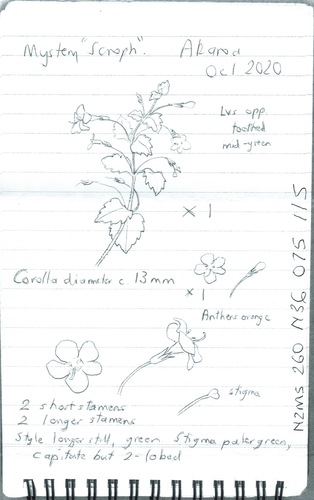 Mystery "Scroph". Akaroa
Oct 2020
Lvs opp
toothed
mid-green
x 1
Corolla diameter c. 13mm
x 1
Anthers orange
stigma
2 short stamens
2 longer stamens
Style longer still, green Stigma paler green,
capitate but 2-lobed
NZMS 260 N36 075 115